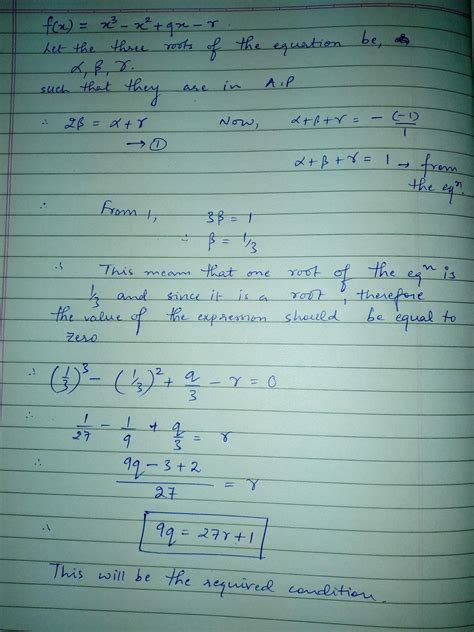 f(x) = x³ - x² + qx - r.
Let the three roots of the equation be,
α, β, γ.
such that they are in A.P
∴ 2β = α + γ Now, α+β+γ = - (-1)/1
→ ①
α + β + γ = 1 → from the eqⁿ.
∴ From 1, 3β = 1
∴ β = 1/3
∴ This means that one root of the eqⁿ is
1/3 and since it is a root, therefore
the value of the expression should be equal to
zero
∴ (1/3)³ - (1/3)² + q/3 - r = 0
1/27 - 1/9 + q/3 = r
∴ (9q - 3 + 2)/27 = r
∴ 9q = 27r + 1
This will be the required condition.